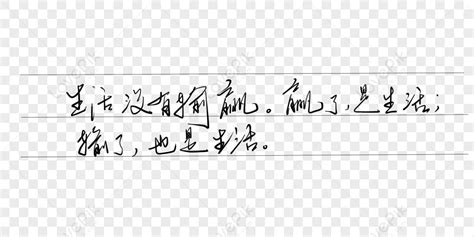 生活没有输赢。赢了,是生活;
输了,也是生活。